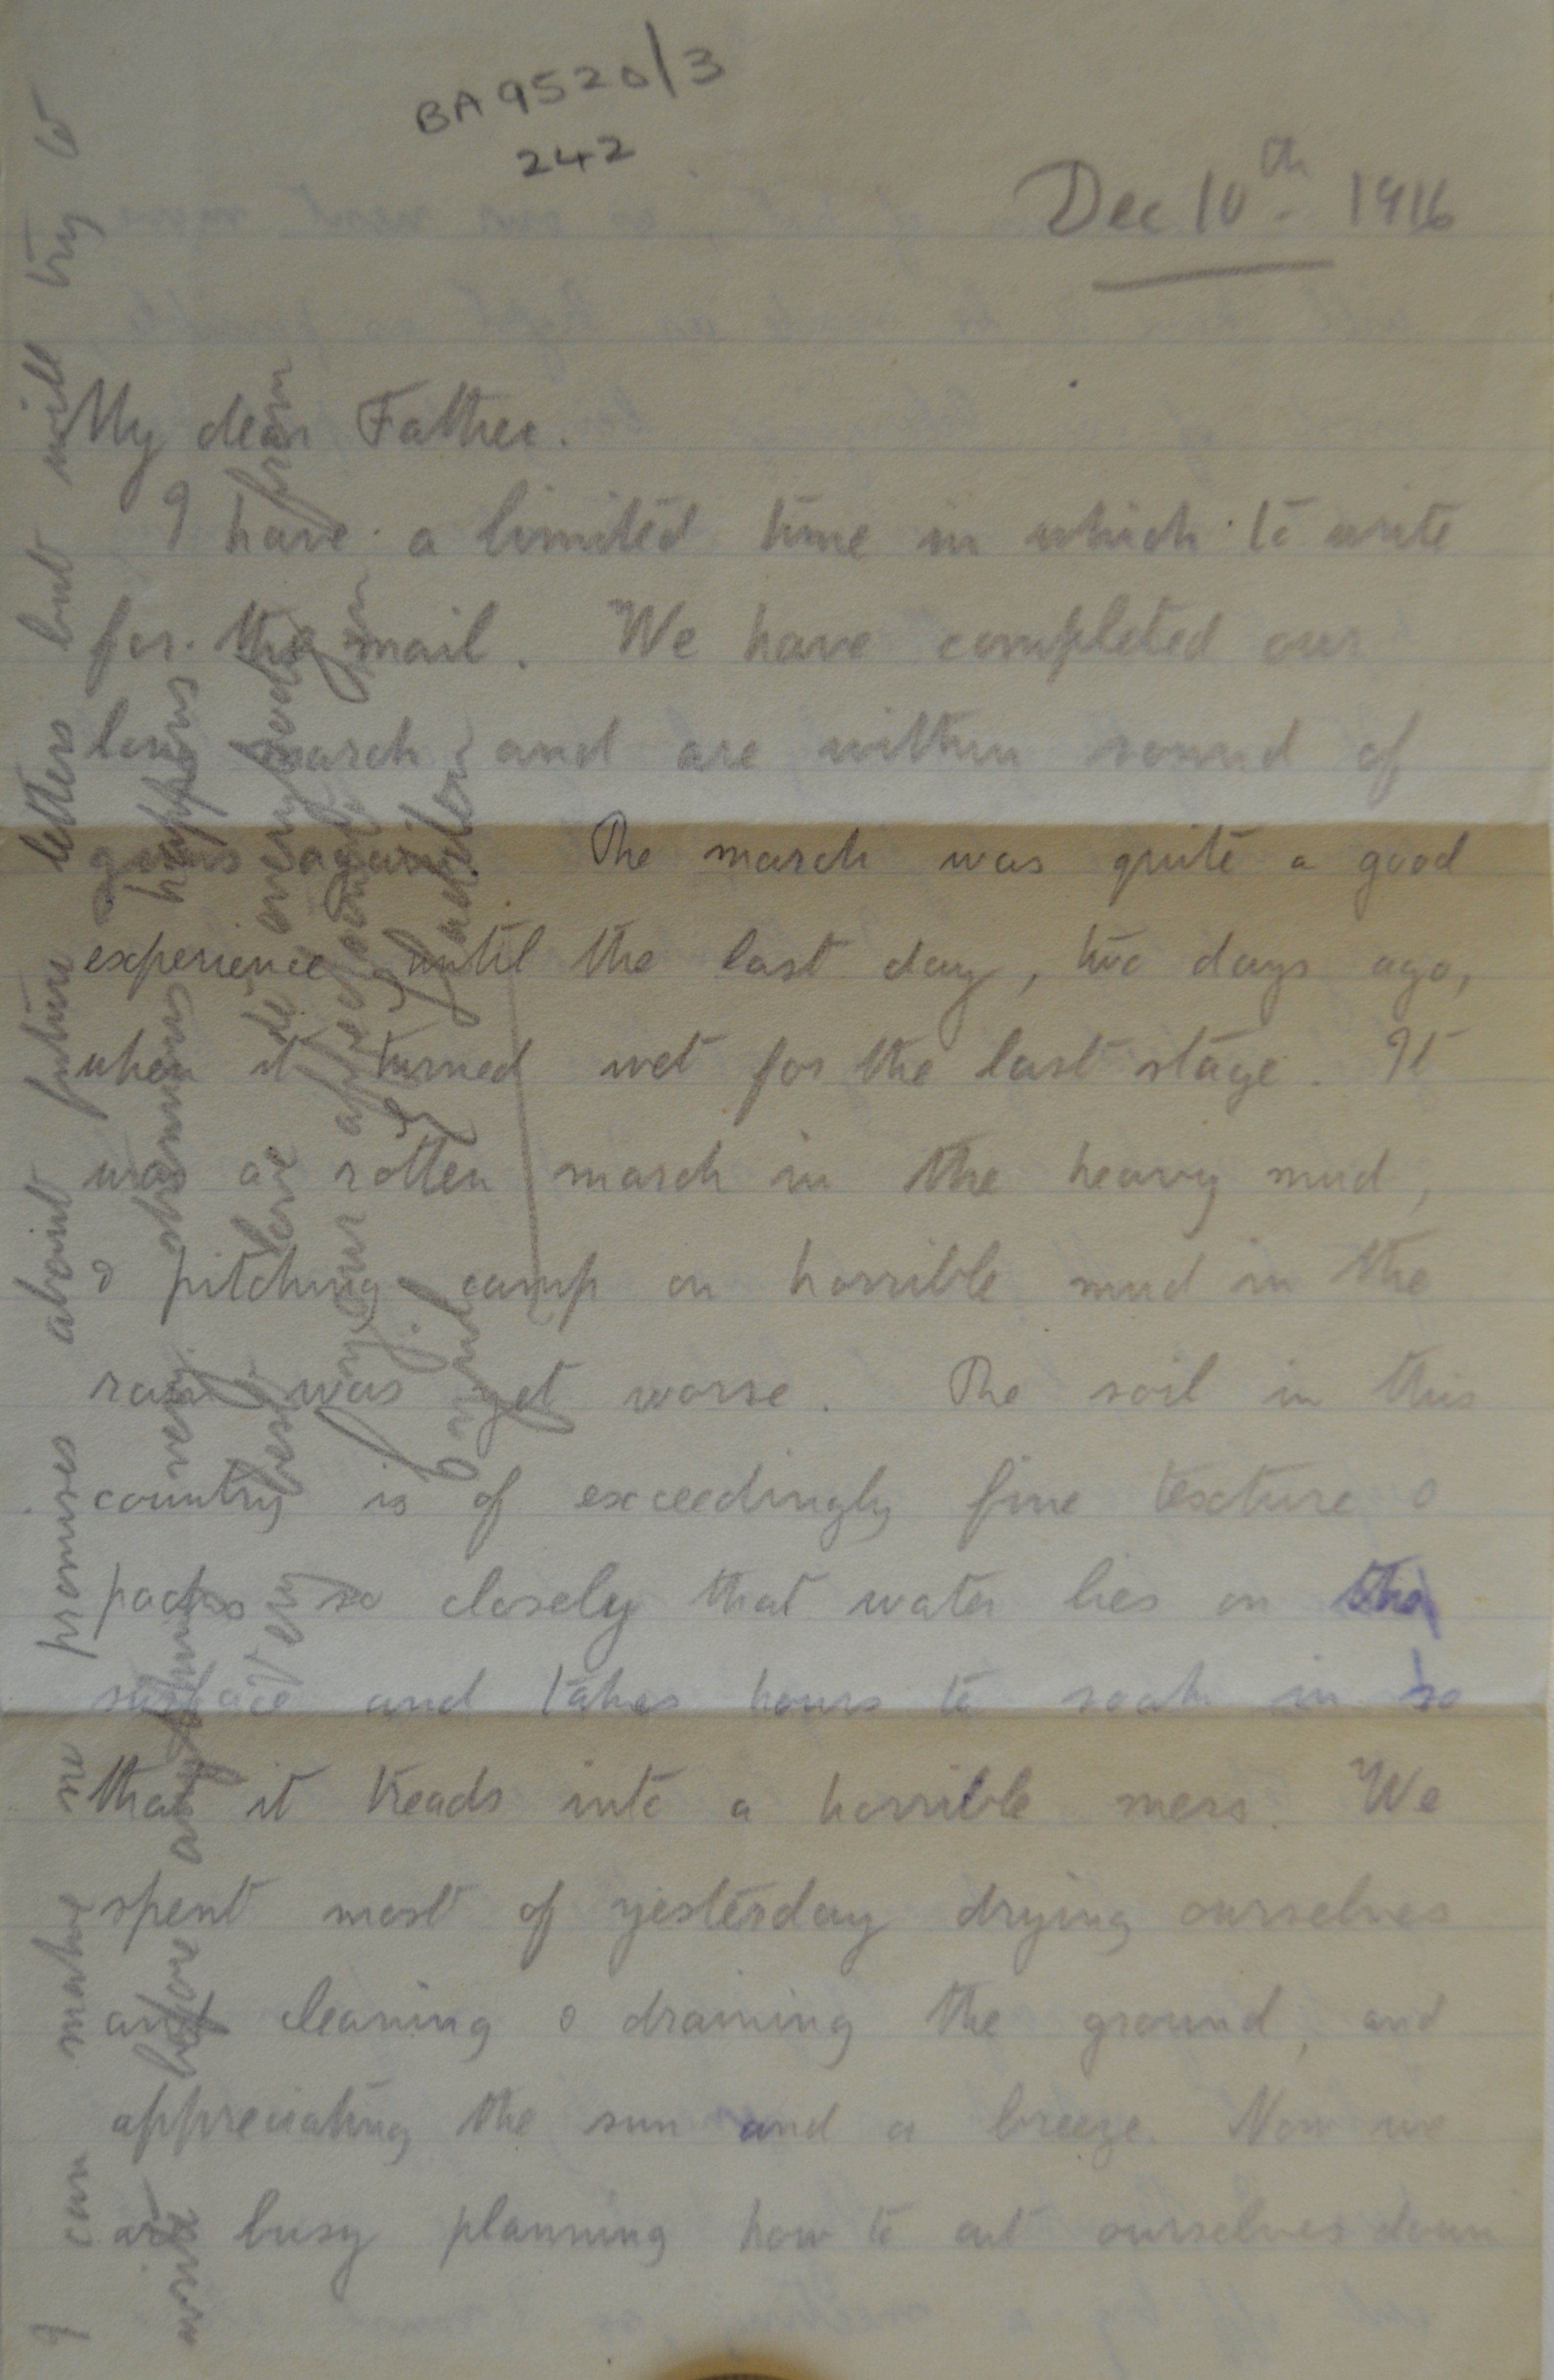 BA 9520/3
242
Dec 10th 1916
My dear Father.
I have a limited time in which to write
for this mail. We have completed our
long march, and are within sound of
guns again. The march was quite a good
experience, until the last day, two days ago,
when it turned wet for the last stage. It
was a rotten march in the heavy mud,
& pitching camp on horrible mud in the
rain was yet worse. The soil in this
country is of exceedingly fine texture &
packs so closely that water lies on the
surface and takes hours to soak in so
that it treads into a horrible mess. We
spent most of yesterday drying ourselves
and cleaning & draining the ground, and
appreciating the sun and a breeze. Now we
are busy planning how to cut ourselves down
I can make no promises about future letters but will try to
write before anything very strenuous happens
Very best love to everybody from
your affectionate son
Cyril